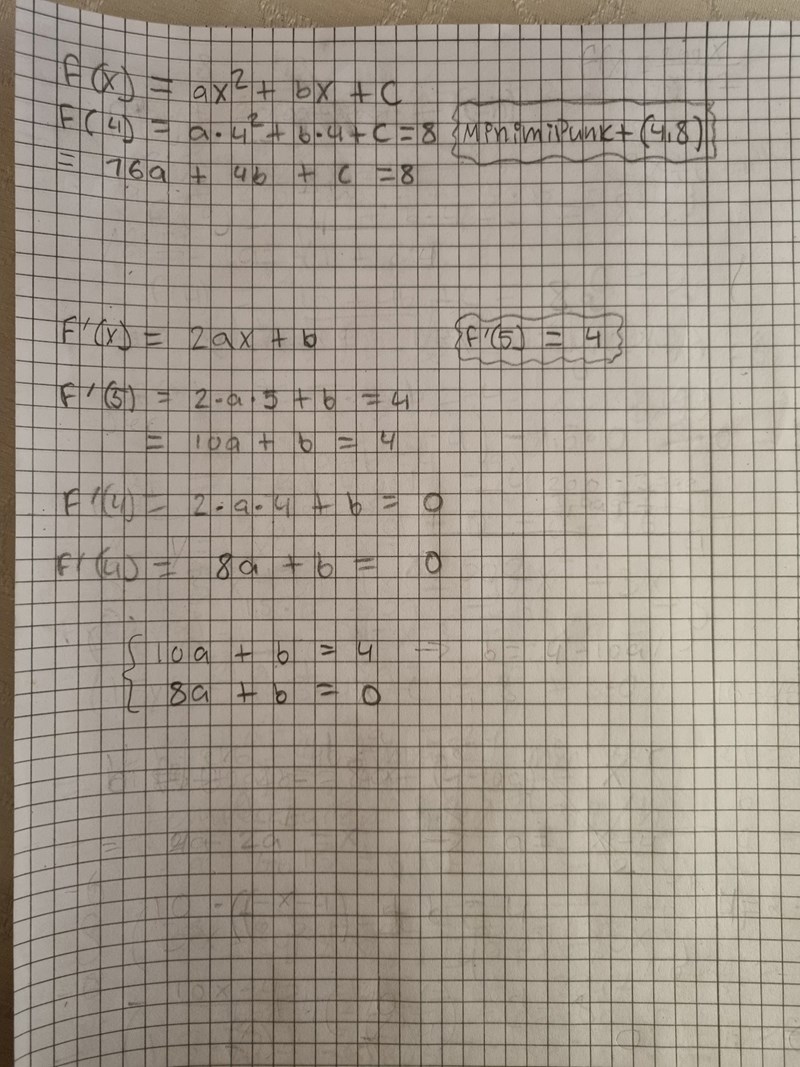 F(x) = ax² + bx + c
F(4) = a·4² + b·4 + c = 8 {Minimipunkt (4,8)}
= 16a + 4b + c = 8
F'(x) = 2ax + b {F'(5) = 4}
F'(5) = 2·a·5 + b = 4
= 10a + b = 4
F'(4) = 2·a·4 + b = 0
F'(4) = 8a + b = 0
{ 10a + b = 4 → b = 4-10a
8a + b = 0